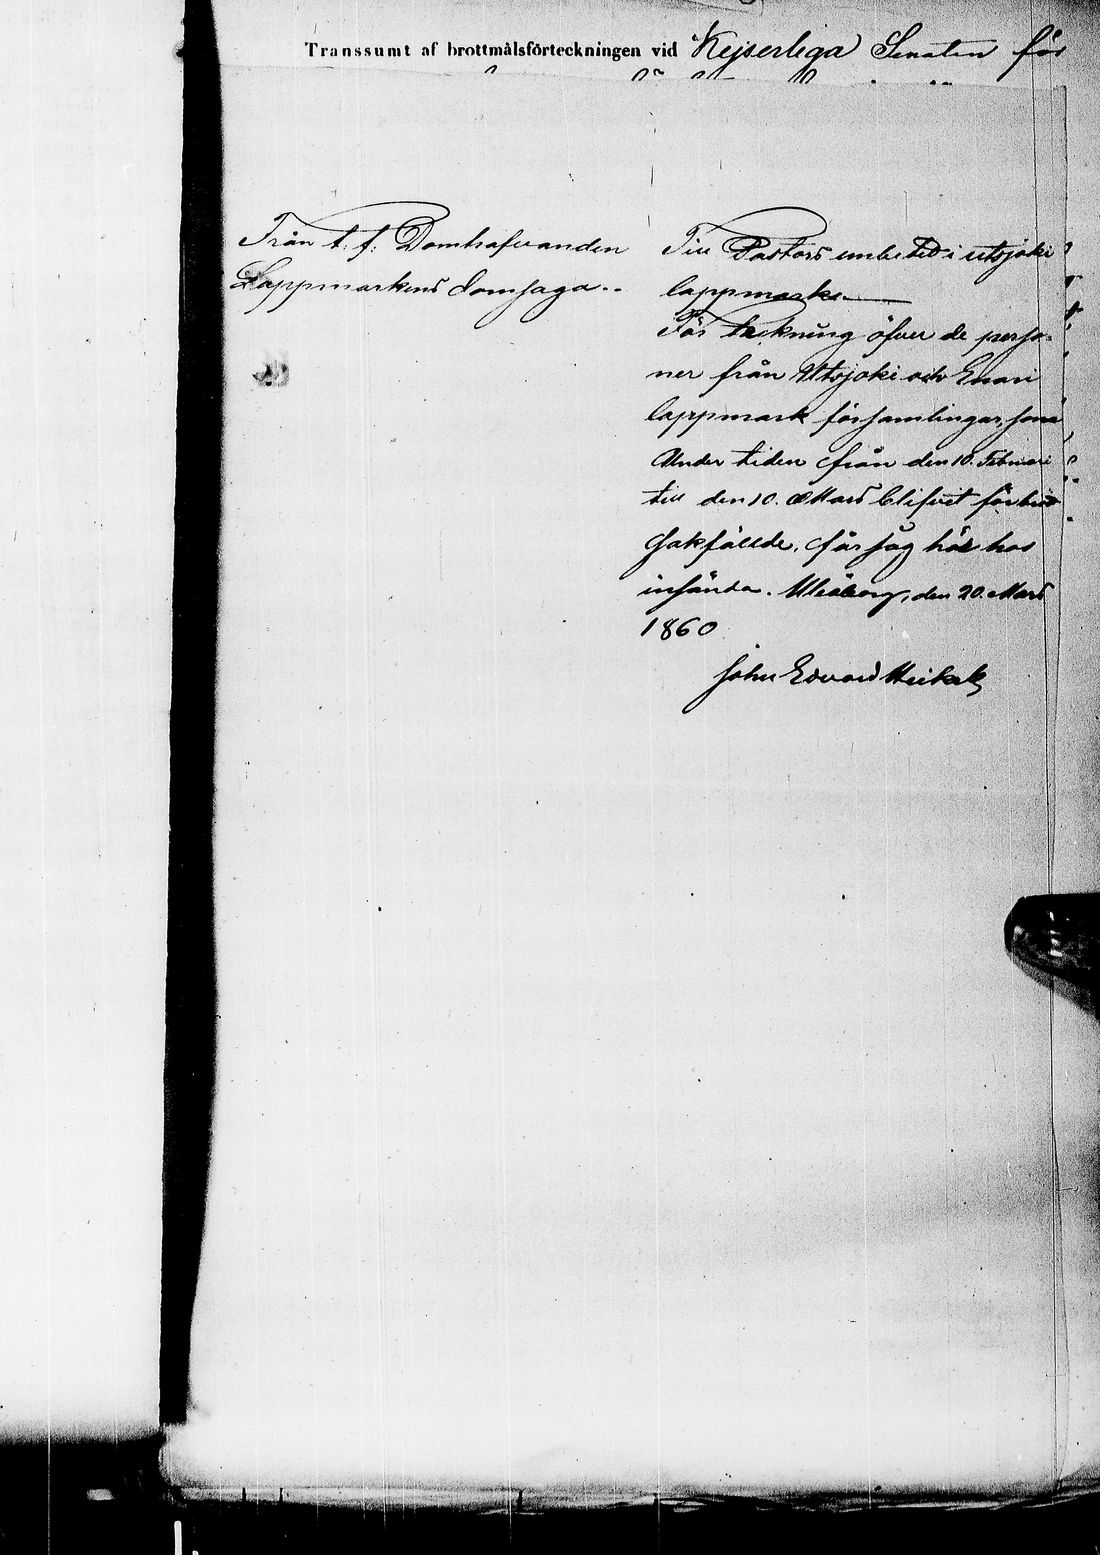 Transsumt af brottmålsförteckningen vid Kejserliga Senaten för
Från t. f. Domhafvanden
Lappmarkens domsaga..
Till Pastors embetet i utsjoki
lappmark.
Förteckning öfver de perso-
ner från Utsjoki och Enari
lappmark församlingar, som
Under tiden från den 10. Februari
till den 10. Mars blifvit
sakfällde, får jag här hos
insända. Uleåborg, den 20. Mars
1860
John Edvard